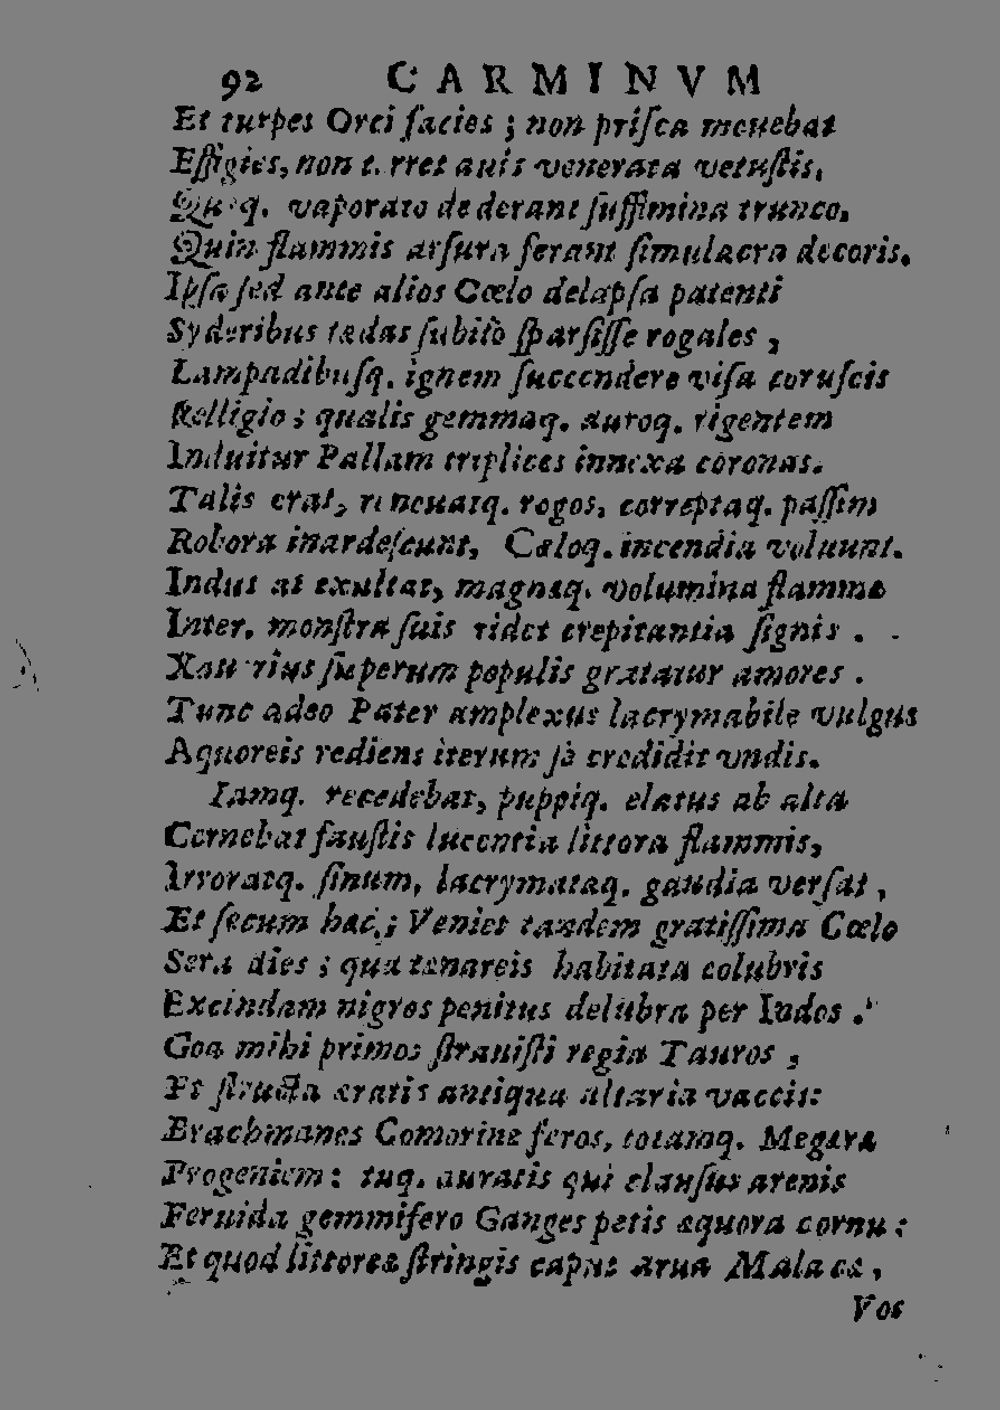 92 CARMINVM
Et turpes Orci facies; non prisca mouebat
Effigies, non terret auis venerata vetustis,
Quęq. vaporato dederant suffimina trunco,
Quin flammis arsura ferant simulacra decoris.
Ipsa sed ante alios Cœlo delapsa patenti
Syderibus tædas subitò sparsisse rogales,
Lampadibusq. ignem succendere visa coruscis
Relligio; qualis gemmaq. auroq. rigentem
Induitur Pallam triplices innexa coronas.
Talis erat, renouatq. rogos, correptaq. passim
Robora inardescunt, Cæloq. incendia voluunt.
Indus at exultat, magnaq. volumina flammæ
Inter, monstra suis ridet crepitantia signis.
Xauerius superum populis gratatur amores.
Tunc adeo Pater amplexus lacrymabile vulgus
Aquoreis rediens iterum se credidit vndis.
Iamq. recedebat, puppiq. elatus ab alta
Cernebat faustis lucentia littora flammis,
Irroratq. sinum, lacrymataq. gaudia versat,
Et secum hæc; Veniet tandem gratissima Cœlo
Sera dies; qua tænareis habitata colubris
Excindam nigros penitus delubra per Indos.
Goa mihi primos strauisti regia Tauros,
Et structa æratis antiqua altaria vaccis:
Brachmanes Comorinæ feros, totamq. Megæra
Progeniem: tuq. auratis qui clausus arenis
Feruida gemmifero Ganges petis æquora cornu:
Et quod littoreæ stringis caput arua Malacæ,
Vos